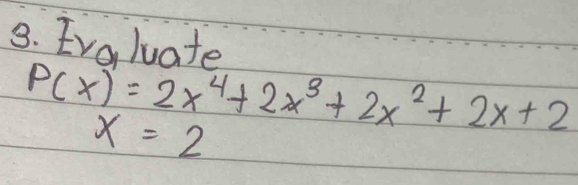 3. Evaluate
P(x) = 2x⁴ + 2x³ + 2x² + 2x + 2
x = 2